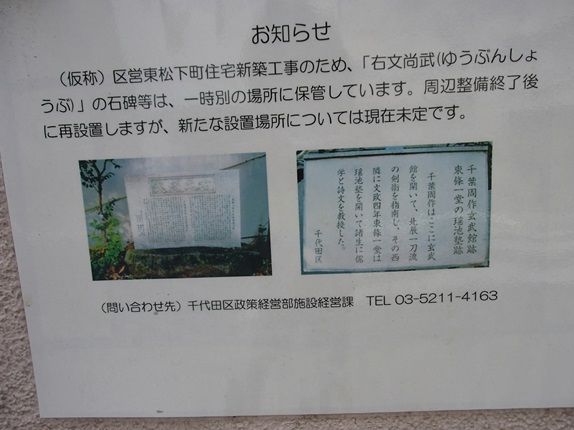 お知らせ
（仮称）区営東松下町住宅新築工事のため、「右文尚武(ゆうぶんしょ
うぶ)」の石碑等は、一時別の場所に保管しています。周辺整備終了後
に再設置しますが、新たな設置場所については現在未定です。
千葉周作玄武館跡
東條一堂の瑶池塾跡
千葉周作はここに玄武
館を開いて、北辰一刀流
の剣術を指南し、その西
隣に文政四年東條一堂は
瑶池塾を開いて諸生に儒
学と詩文を教授した。
千代田区
（問い合わせ先）千代田区政策経営部施設経営課　TEL 03-5211-4163